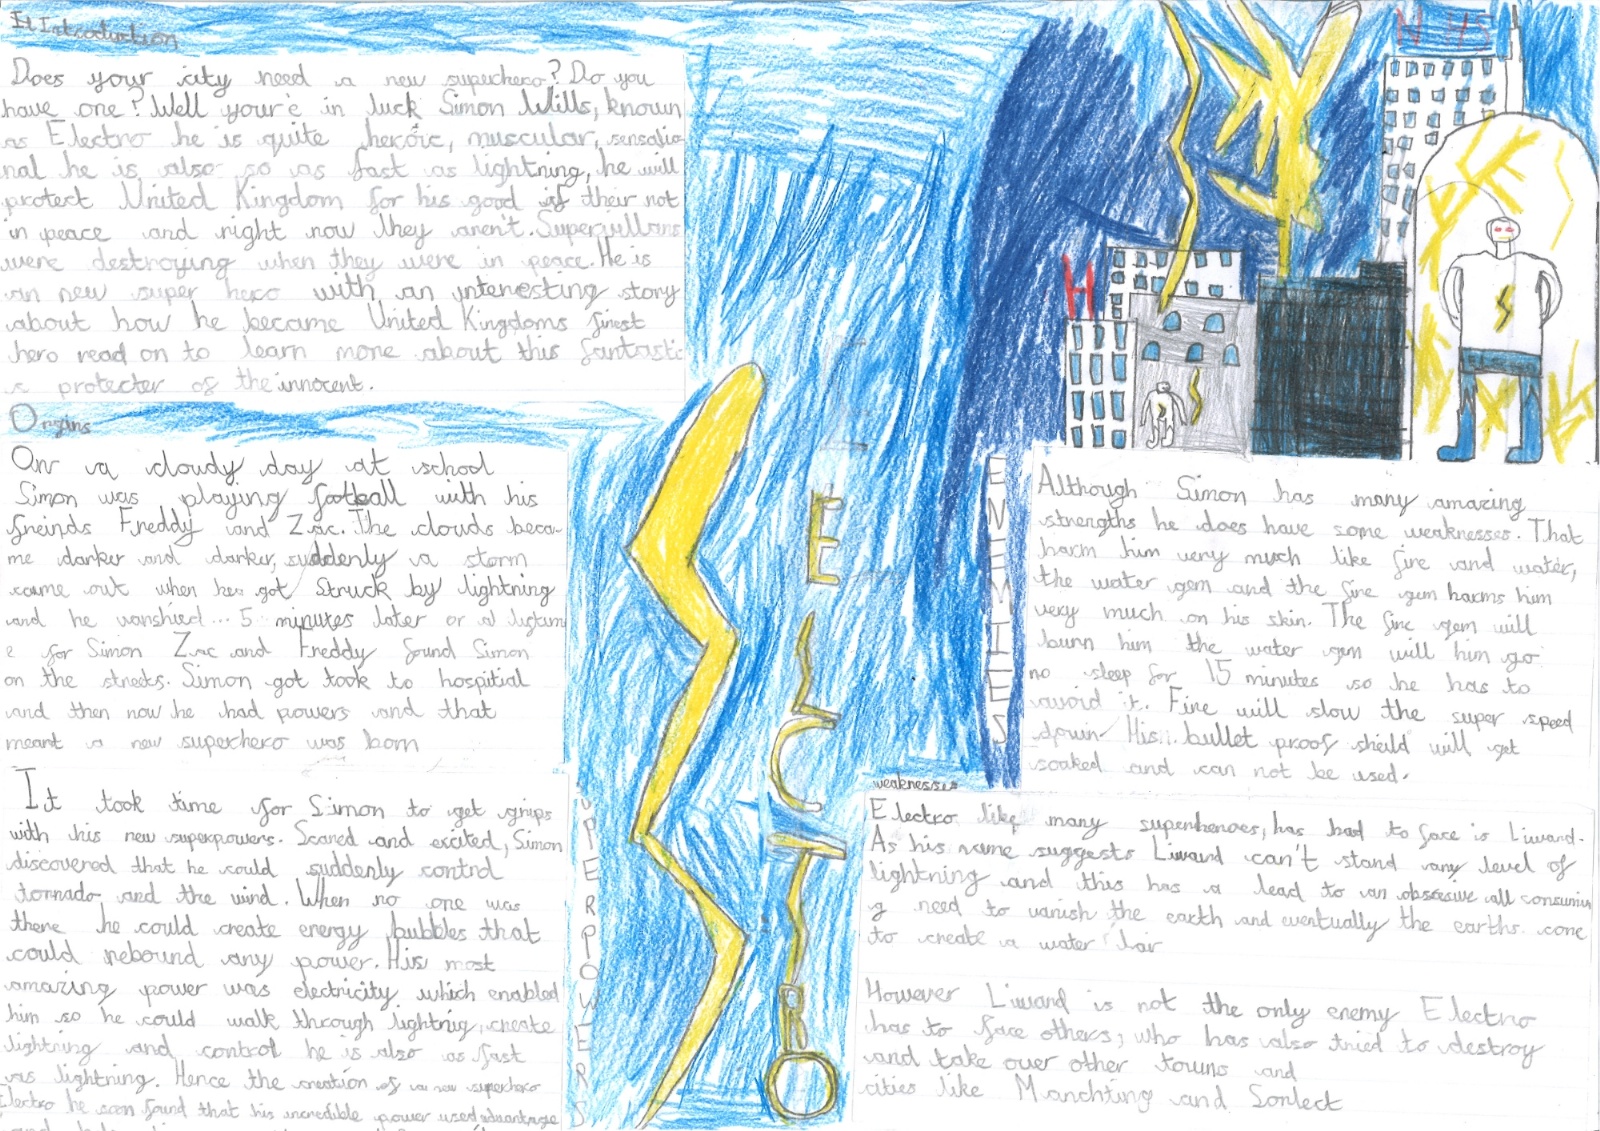 It Introduction
Does your city need a new superhero? Do you
have one? Well your'e in luck Simon Wills, known
as Electro he is quite heroic, muscular, sensatio
nal he is also so as fast as lightning, he will
protect United Kingdom for his good if their not
in peace and right now they aren't. Supervillans
were destroying when they were in peace. He is
an new super hero with an interesting story
about how he became United Kingdoms finest
hero read on to learn more about this fantastic
s protecter of the innocent.
Organs
On a cloudy day at school
Simon was playing football with his
freinds Freddy and Zac. The clouds beca-
me darker and darker, suddenly a storm
came out when he got struck by lightning
and he vanshied... 5 minutes later or a liftim
e for Simon Zac and Freddy found Simon
on the streets. Simon got took to hospitial
and then now he had powers and that
meant a new superhero was born
SUPERPOWERS
It took time for Simon to get grips
with his new superpowers. Scared and excited, Simon
discovered that he could suddenly control
tornado and the wind. When no one was
there he could create energy bubbles that
could rebound any power. His most
amazing power was electricity which enabled
him so he could walk through lightnig, create
lightning and control he is also as fast
as lightning. Hence the creation of a new superhero
Electro he soon found that his incredible power used advantage
ELCTRO
NHS
H
ENEMIES
Although Simon has many amazing
strengths he does have some weaknesses. That
harm him very much like fire and water,
the water gem and the fire gem harms him
very much on his skin. The fire gem will
burn him the water gem will him go
no sleep for 15 minutes so he has to
avoid it. Fire will slow the super speed
down. His bullet proof sheild will get
soaked and can not be used.
weaknesses
Electro like many superheroes, has had to face is Liward.
As his name suggests Liward can't stand any level of
lightning and this has a lead to an obsesive all consumin
g need to vanish the earth and eventually the earths cone
to create a water lair
However Liward is not the only enemy Electro
has to face others, who has also tried to destroy
and take over other towns and
cities like Manchting and Sonlect